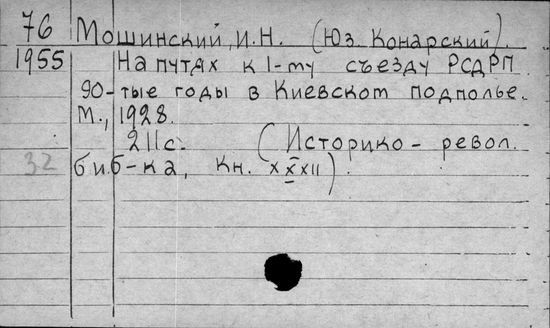 76 Мошинский, И.Н. (Юз. Конарский).
1955 На путях к I-му съезду РСДРП
90-тые годы в Киевском подполье.
М., 1928.
211с. (Историко-револ.
32 биб-ка, кн. XXXII).